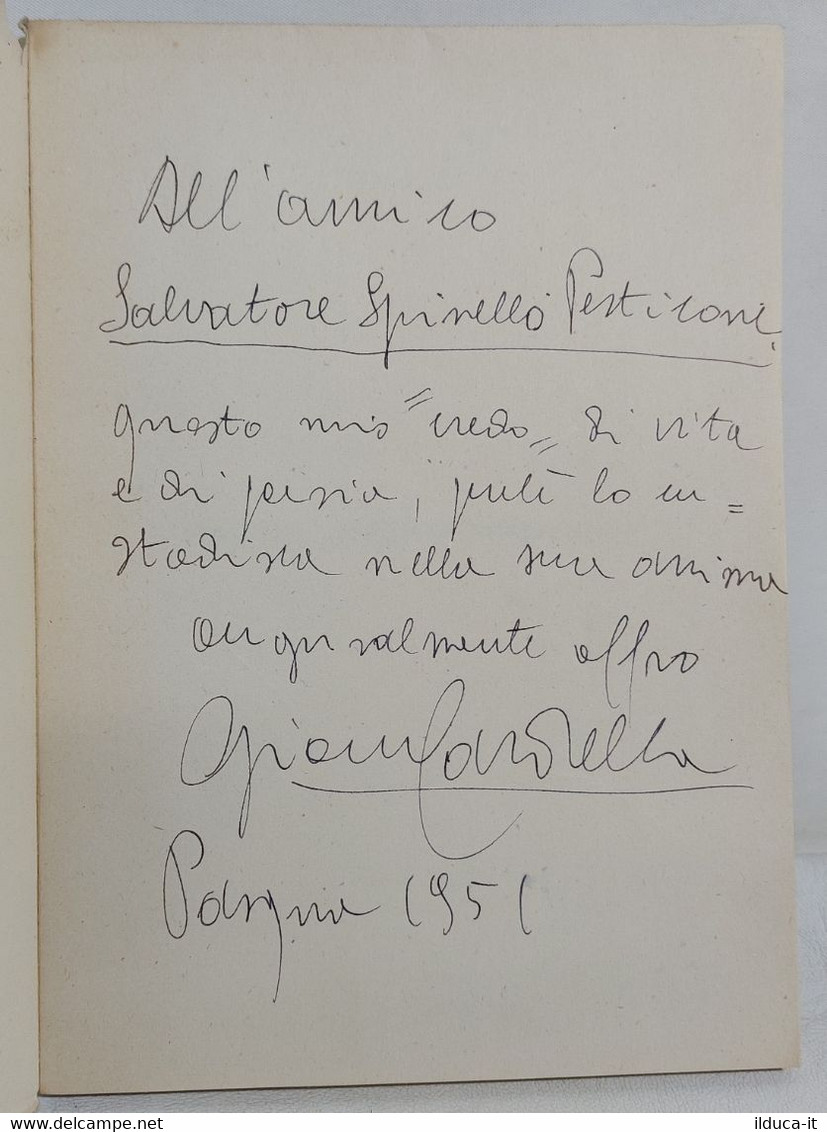 All'amico
Salvatore Spinello Pesticoni
questo mio "credo" di vita
e di poesia, perché lo cu=
stodisca nella sua anima
auguralmente offro
Pasqua 1951
delcampe.net
ilduca-it